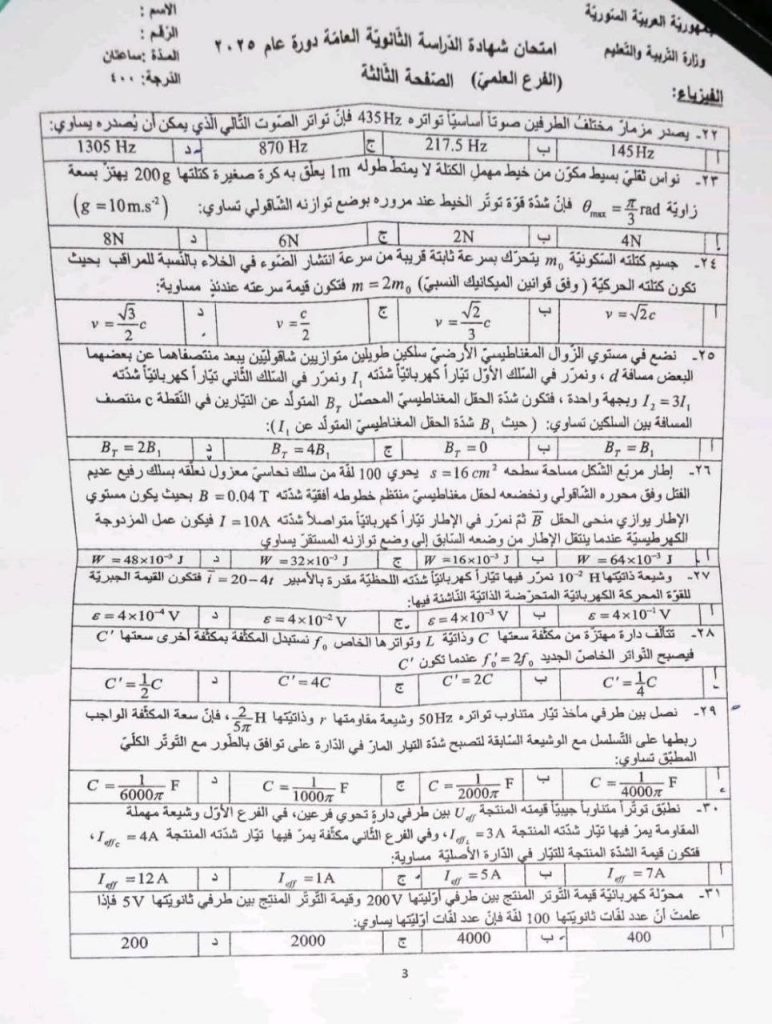 الجمهوريّة العربيّة السّوريّة
وزارة التربية والتّعليم
امتحان شهادة الدّراسة الثّانويّة العامّة دورة عام ٢٠٢٥
(الفرع العلميّ) الصّفحة الثّالثة
الاسم :
الرّقم :
المدّة :ساعتان
الدّرجة: ٤٠٠
الفيزياء:
٢٢- يصدر مزمارٌ مختلفُ الطّرفين صوتاً أساسيّاً تواتره 435Hz فإنّ تواتر الصّوت التّالي الّذي يمكن أن يُصدره يساوي:
أ 145Hz ب 217.5 Hz ج 870 Hz د 1305 Hz
٢٣- نواس ثقليّ بسيط مكوّن من خيط مهمل الكتلة لا يمتطّ طوله 1m يعلّق به كرة صغيرة كتلتها 200g يهتزّ بسعة
زاويّة θmax = π/3 rad فإنّ شدّة قوّة توتّر الخيط عند مروره بوضع توازنه الشّاقولي تساوي: (g = 10m.s⁻²)
أ 4N ب 2N ج 6N د 8N
٢٤- جسيم كتلته السّكونيّة m₀ يتحرّك بسرعة ثابتة قريبة من سرعة انتشار الضّوء في الخلاء بالنّسبة للمراقب بحيث
تكون كتلته الحركيّة ( وفق قوانين الميكانيك النسبيّ) m = 2m₀ فتكون قيمة سرعته عندئذٍ مساوية:
أ v = √2c ب v = √2/3 c ج v = c/2 د v = √3/2 c
٢٥- نضع في مستوي الزّوال المغناطيسيّ الأرضيّ سلكين طويلين متوازيين شاقوليّين يبعد منتصفاهما عن بعضهما
البعض مسافة d ، ونمرّر في السّلك الأوّل تيّاراً كهربائيّاً شدّته I₁ ونمرّر في السّلك الثّاني تيّاراً كهربائيّاً شدّته
I₂ = 3I₁ وبجهة واحدة ، فتكون شدّة الحقل المغناطيسيّ المحصّل B_T المتولّد عن التيّارين في النّقطة c منتصف
المسافة بين السلكين تساوي: ( حيث B₁ شدّة الحقل المغناطيسيّ المتولّد عن I₁ ):
أ B_T = B₁ ب B_T = 0 ج B_T = 4B₁ د B_T = 2B₁
٢٦- إطار مربّع الشّكل مساحة سطحه s = 16 cm² يحوي 100 لفّة من سلك نحاسيّ معزول نعلّقه بسلك رفيع عديم
الفتل وفق محوره الشّاقولي ونخضعه لحقل مغناطيسيّ منتظم خطوطه أفقيّة شدّته B = 0.04 T بحيث يكون مستوي
الإطار يوازي منحى الحقل B ثمّ نمرّر في الإطار تيّاراً كهربائيّاً متواصلاً شدّته I = 10A فيكون عمل المزدوجة
الكهرطيسيّة عندما ينتقل الإطار من وضعه السّابق إلى وضع توازنه المستقرّ يساوي
أ W = 64×10⁻³ J ب W = 16×10⁻³ J ج W = 32×10⁻³ J د W = 48×10⁻³ J
٢٧- وشيعة ذاتيّتها 10⁻² H نمرّر فيها تيّاراً كهربائيّاً شدّته اللحظيّة مقدرة بالأمبير i = 20-4t فتكون القيمة الجبريّة
للقوّة المحركة الكهربائيّة المتحرّضة الذاتيّة النّاشئة فيها:
أ ε = 4×10⁻¹ V ب ε = 4×10⁻³ V ج ε = 4×10⁻² V د ε = 4×10⁻⁴ V
٢٨- تتألّف دارة مهتزّة من مكثّفة سعتها C وذاتيّة L وتواترها الخاص f₀ نستبدل المكثّفة بمكثّفة أخرى سعتها C'
فيصبح التّواتر الخاصّ الجديد f₀' = 2f₀ عندما تكون C'
أ C' = 1/4 C ب C' = 2C ج C' = 4C د C' = 1/2 C
٢٩- نصل بين طرفي مأخذ تيّار متناوب تواتره 50Hz وشيعة مقاومتها r وذاتيّتها 2/5π H ، فإنّ سعة المكثّفة الواجب
ربطها على التّسلسل مع الوشيعة السّابقة لتصبح شدّة التيار المارّ في الدّارة على توافق بالطّور مع التّوتّر الكلّيّ
المطبّق تساوي:
أ C = 1/4000π F ب C = 1/2000π F ج C = 1/1000π F د C = 1/6000π F
٣٠- نطبّق توتّراً متناوباً جيبيّاً قيمته المنتجة U_eff بين طرفي دارةٍ تحوي فرعين، في الفرع الأوّل وشيعة مهملة
المقاومة يمرّ فيها تيّار شدّته المنتجة I_effL = 3A ، وفي الفرع الثّاني مكثّفة يمرّ فيها تيّار شدّته المنتجة I_effC = 4A ،
فتكون قيمة الشدّة المنتجة للتيّار في الدّارة الأصليّة مساوية:
أ I_eff = 7A ب I_eff = 5A ج I_eff = 1A د I_eff = 12A
٣١- محوّلة كهربائيّة قيمة التّوتر المنتج بين طرفي أوّليتها 200V وقيمة التّوتّر المنتج بين طرفي ثانويّتها 5V فإذا
علمتَ أنّ عدد لفات ثانويّتها 100 لفّة فإنّ عدد لفّات أوّليّتها يساوي:
أ 400 ب 4000 ج 2000 د 200
3